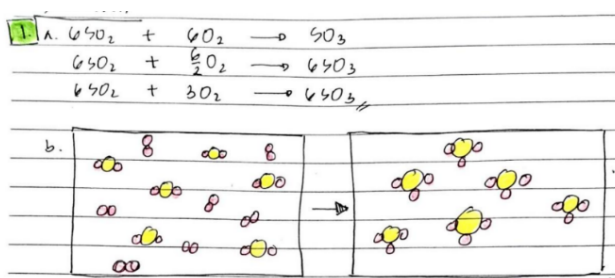 1. A. 6SO₂ + 6O₂ → SO₃
6SO₂ + 6/2 O₂ → 6SO₃
6SO₂ + 3O₂ → 6SO₃
b.